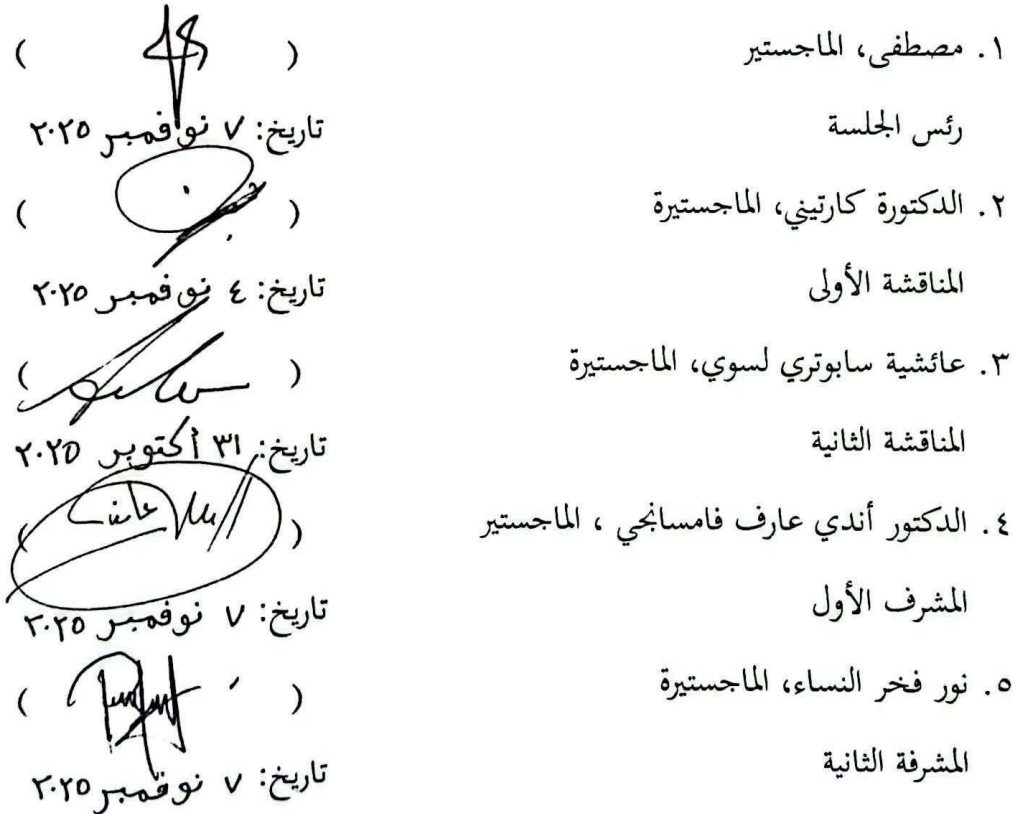 ١. مصطفى، الماجستير ( )
رئس الجلسة تاريخ: ٧ نوفمبر ٢٠٢٥
٢. الدكتورة كارتيني، الماجستيرة ( )
المناقشة الأولى تاريخ: ٤ نوفمبر ٢٠٢٥
٣. عائشية سابوتري لسوي، الماجستيرة ( )
المناقشة الثانية تاريخ: ٣١ أكتوبر ٢٠٢٥
٤. الدكتور أندي عارف فامسانجي ، الماجستير ( )
المشرف الأول تاريخ: ٧ نوفمبر ٢٠٢٥
٥. نور فخر النساء، الماجستيرة ( )
المشرفة الثانية تاريخ: ٧ نوفمبر ٢٠٢٥